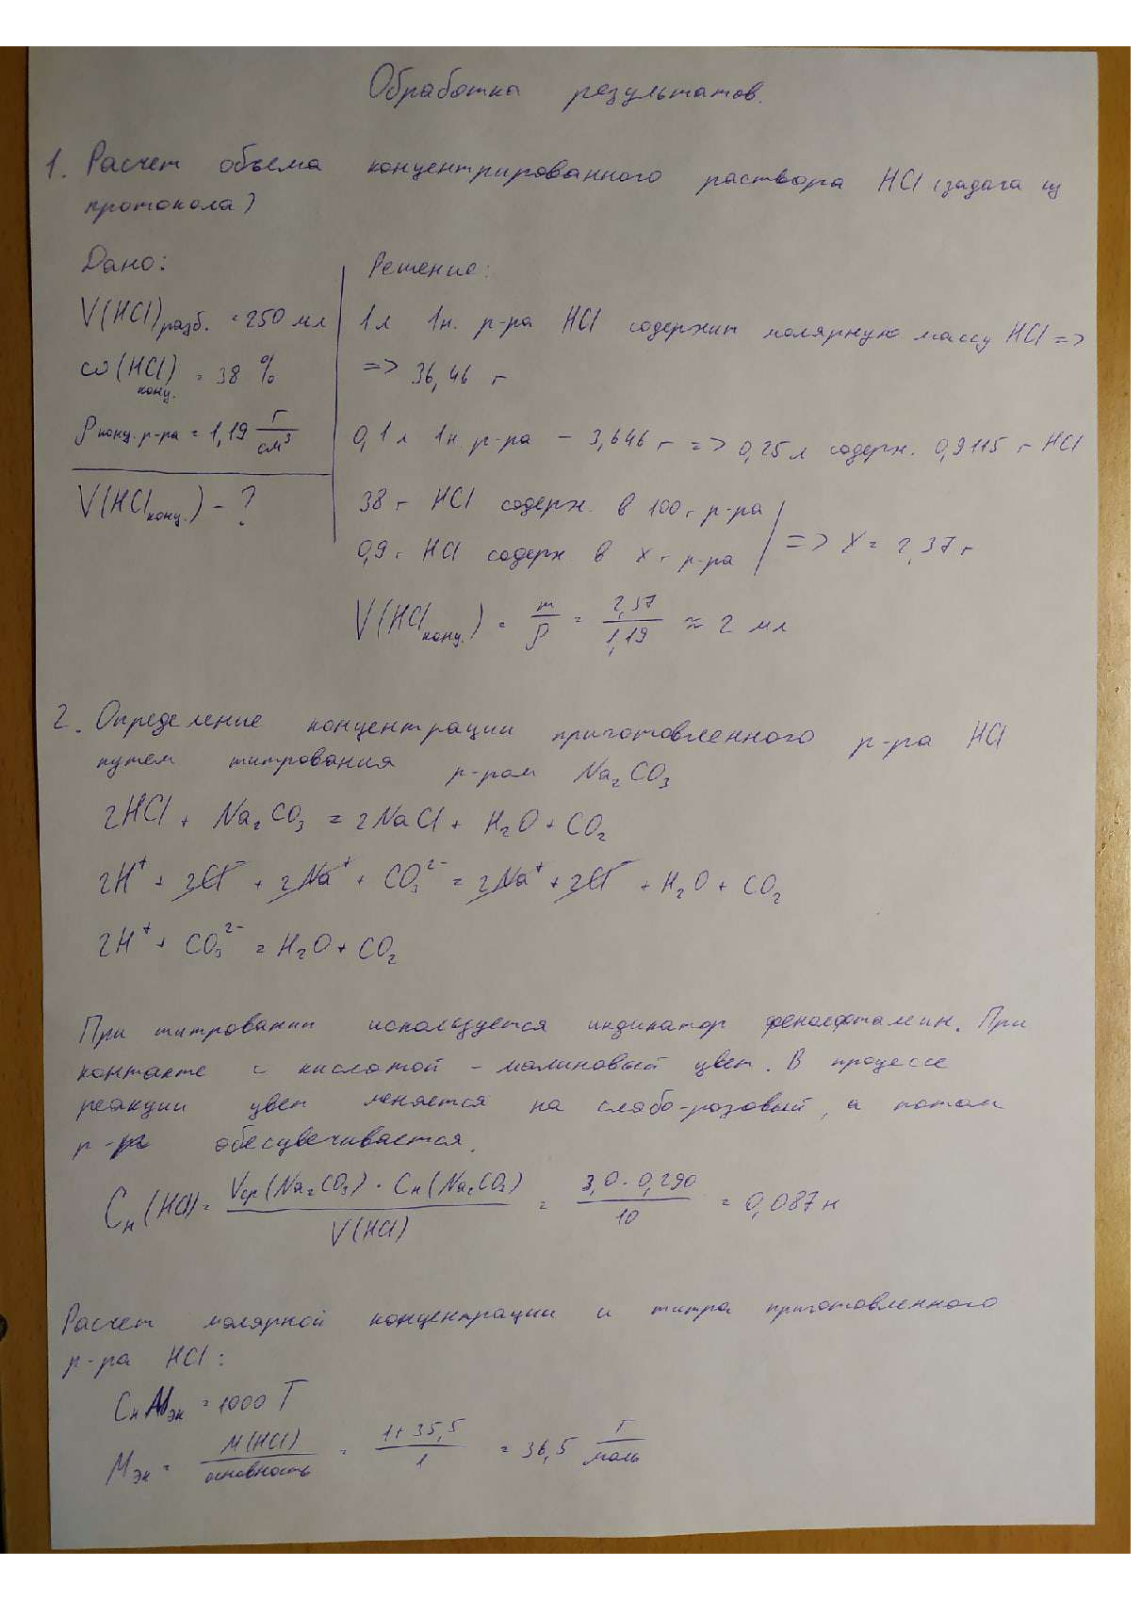 Обработка результатов.
1. Расчет объема концентрированного раствора HCl (задача из
протокола)
Дано:
V(HCl)разб. = 250 мл
ω(HCl)конц. = 38 %
ρконц. р-ра = 1,19 г/см³
V(HClконц.) - ?
Решение:
1л 1н. р-ра HCl содержит молярную массу HCl =>
=> 36,46 г
0,1 л 1н р-ра – 3,646 г => 0,25 л содерж. 0,9115 г HCl
38 г HCl содерж. в 100 г р-ра
0,9 г HCl содерж в x г р-ра | => X = 2,37 г
V(HClконц.) = m/ρ = 2,37/1,19 ≈ 2 мл
2. Определение концентрации приготовленного р-ра HCl
путем титрования р-ром Na₂CO₃
2HCl + Na₂CO₃ = 2NaCl + H₂O + CO₂
2H⁺ + 2Cl⁻ + 2Na⁺ + CO₃²⁻ = 2Na⁺ + 2Cl⁻ + H₂O + CO₂
2H⁺ + CO₃²⁻ = H₂O + CO₂
При титровании используется индикатор фенолфталеин. При
контакте с кислотой – малиновый цвет. В процессе
реакции цвет меняется на слабо-розовый, а потом
р-р обесцвечивается.
Cн(HCl) = Vср(Na₂CO₃) · Cн(Na₂CO₃) / V(HCl) = 3,0 · 0,290 / 10 = 0,087 н
Расчет молярной концентрации и титра приготовленного
р-ра HCl:
CнMэк = 1000 T
Mэк = M(HCl)/основность = 1+35,5/1 = 36,5 г/моль